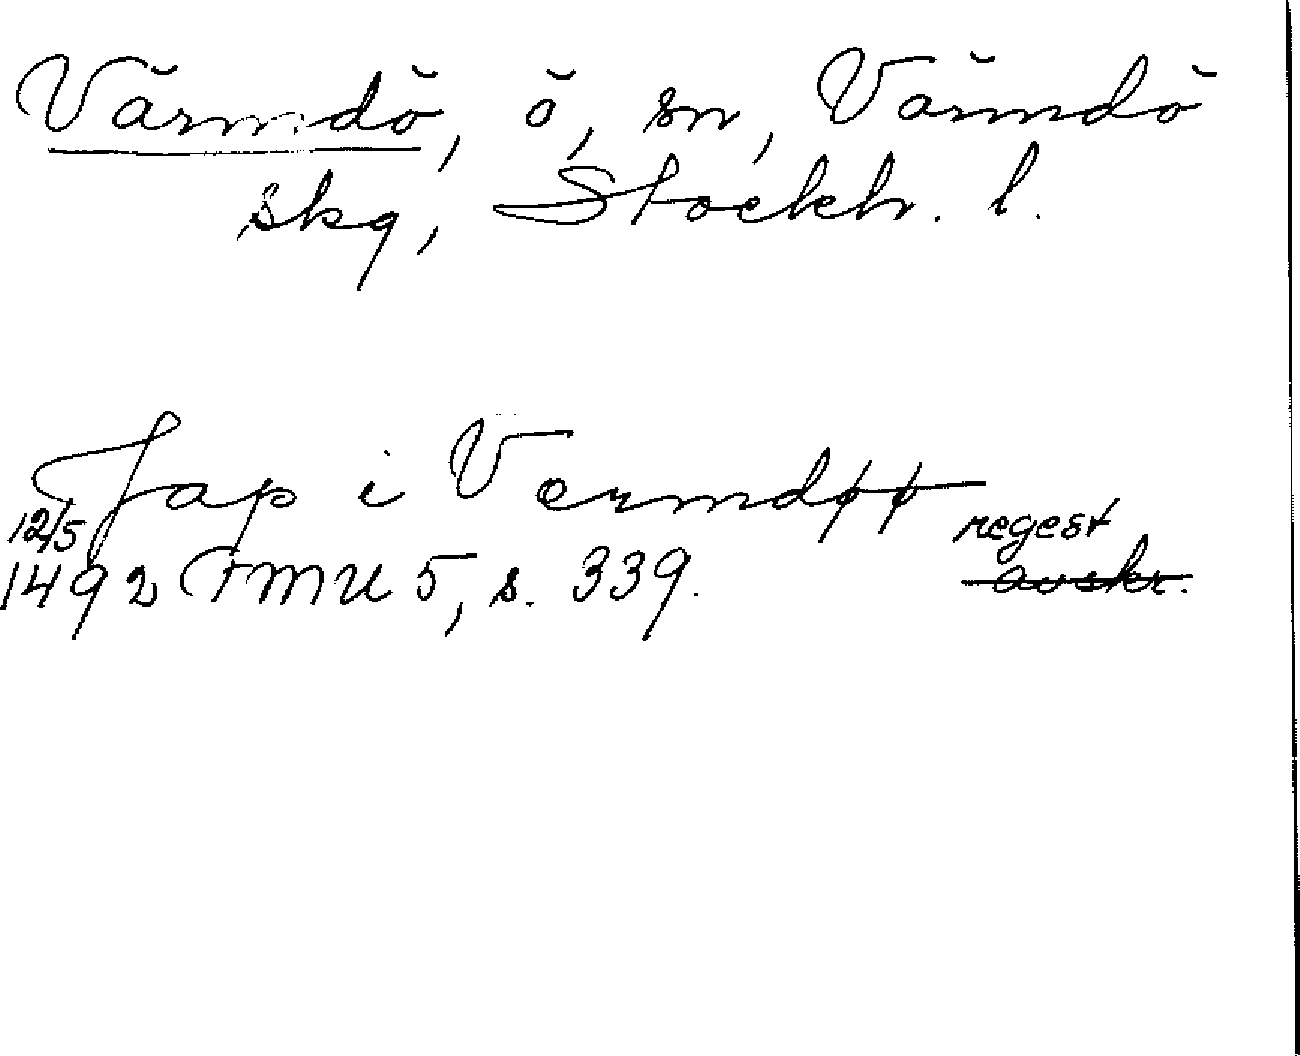 Värmdö, ö, sn, Värmdö
skg, Stockh. l.
Jap i Vermdøø
12/5 regest
1492 FMU 5, s. 339. avskr.